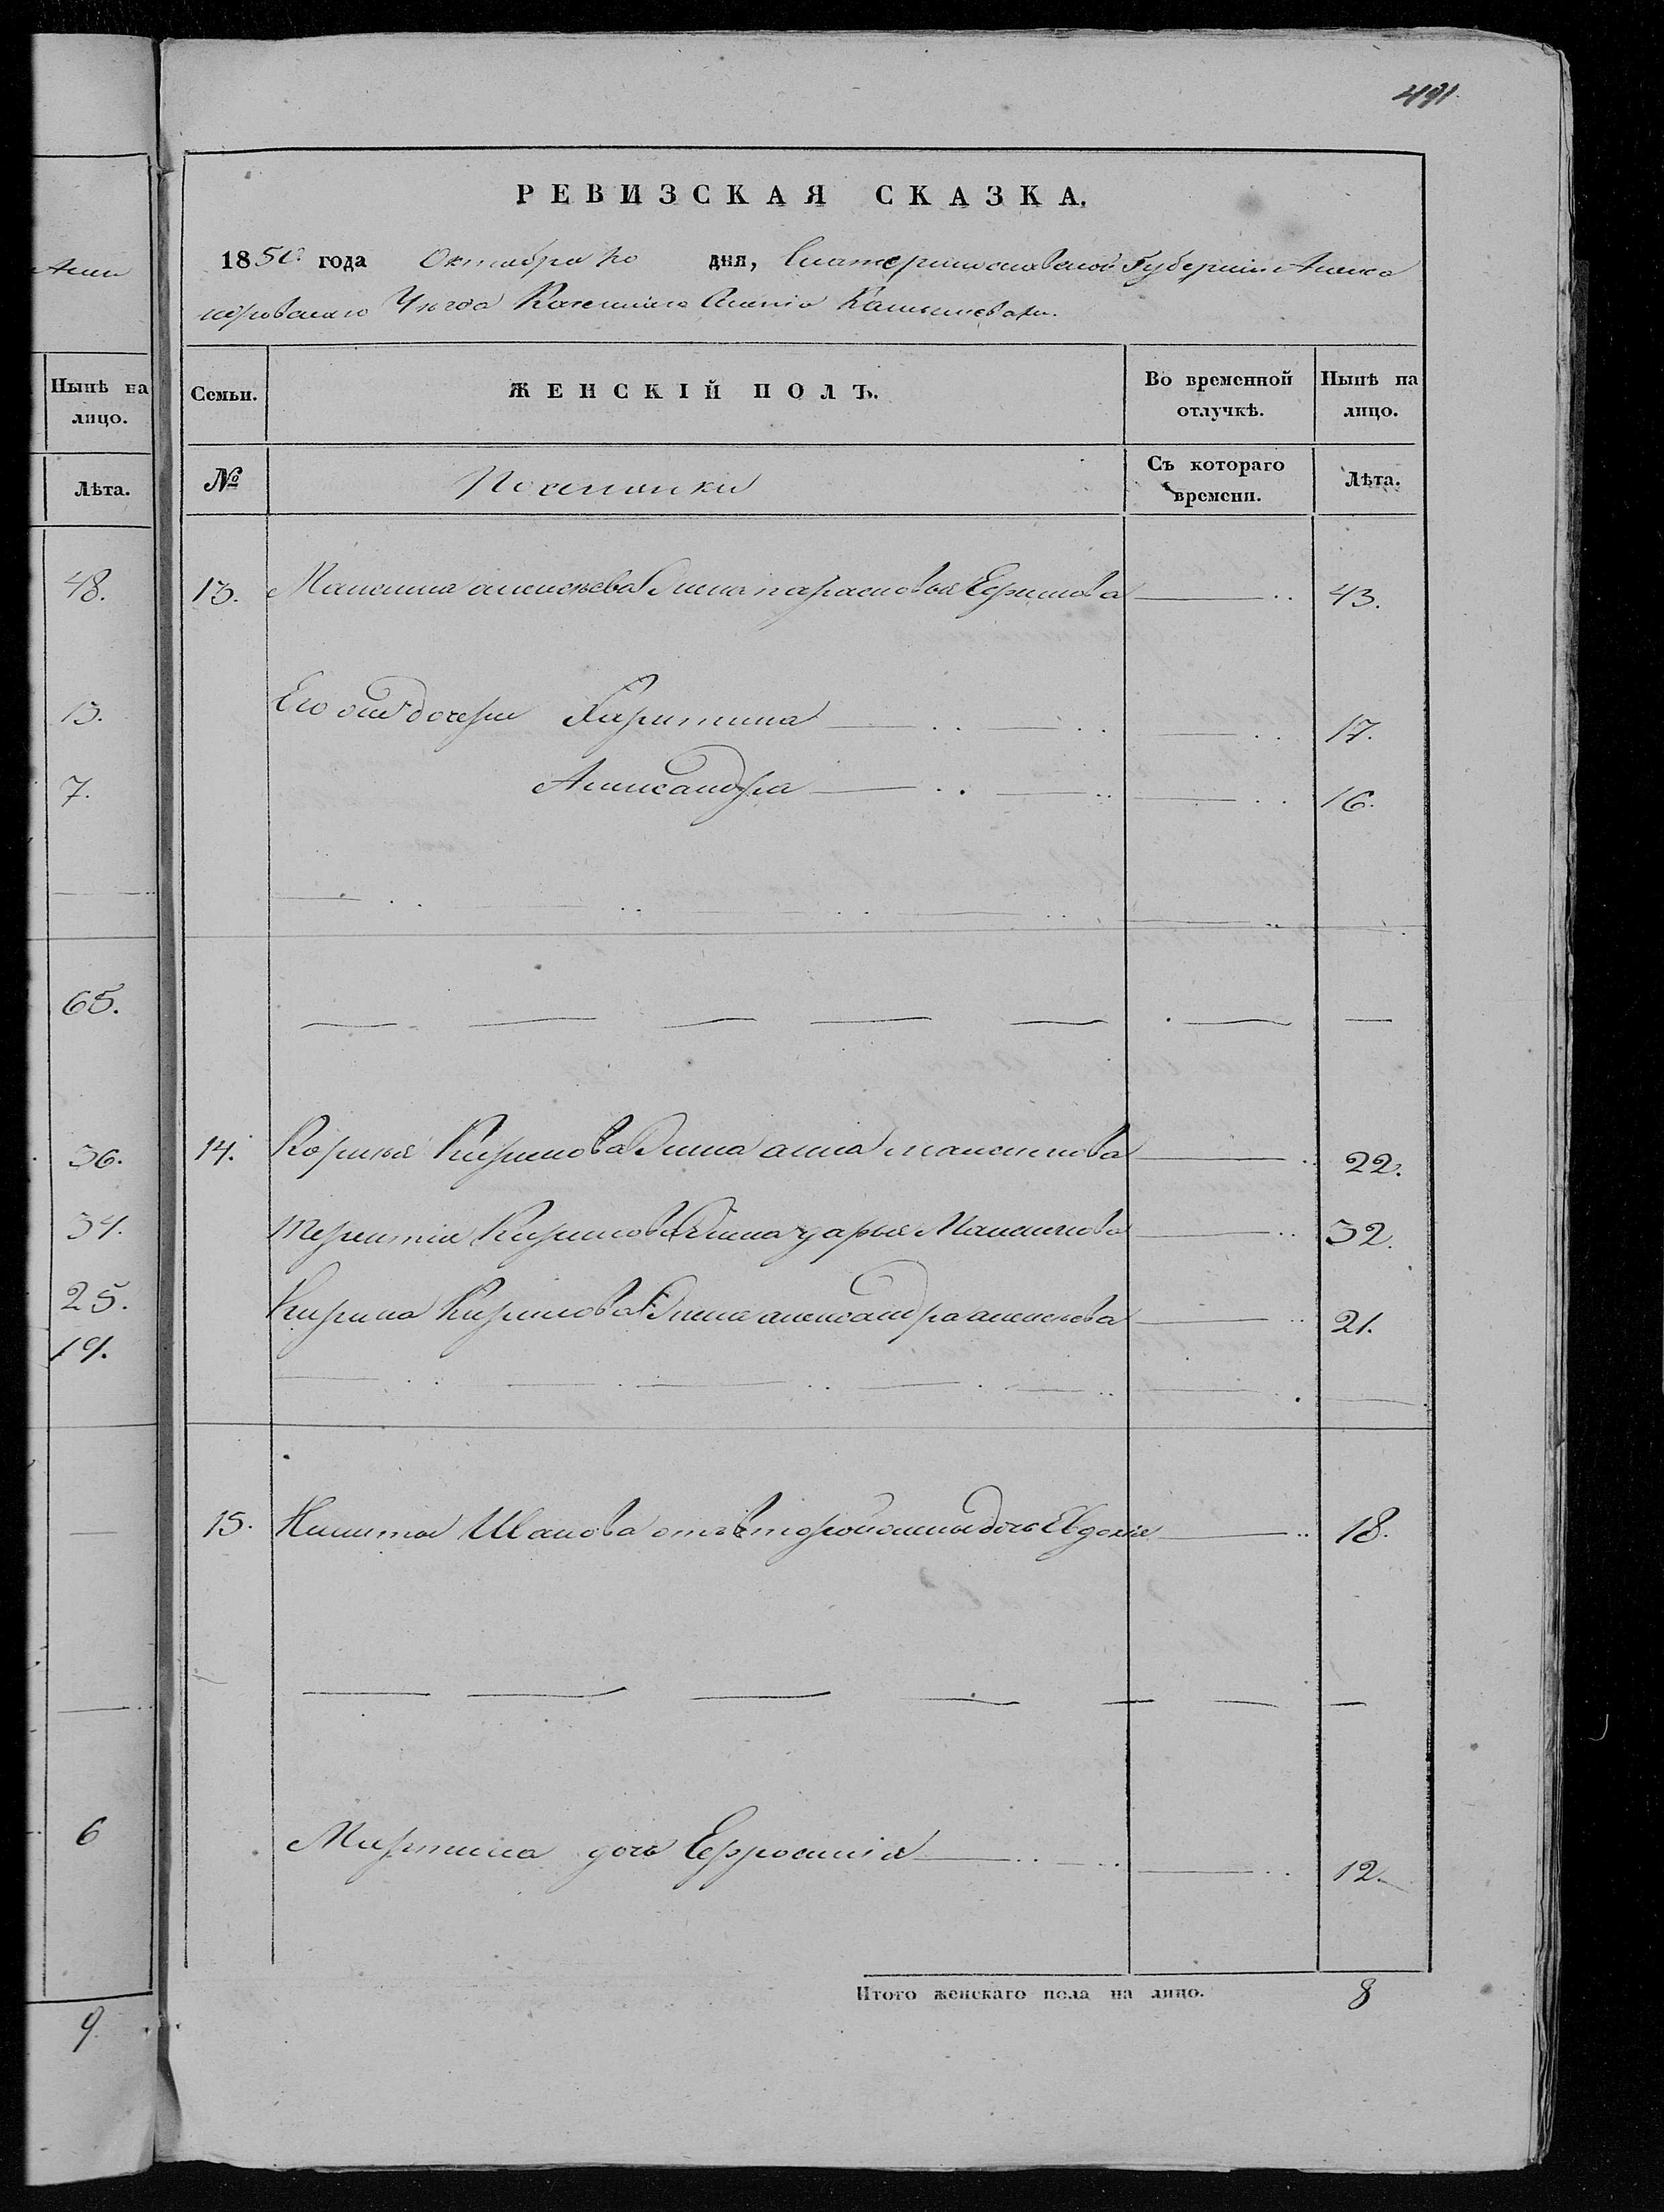 491.
Нынѣ на
лицо.
Лѣта.
48.
13.
7.
65.
36.
34.
25.
19.
6
9
РЕВИЗСКАЯ СКАЗКА.
1850 года Октября дня, Екатеринославской Губерніи Алекса
ндровскаго Уѣзда Казеннаго Селенія
Семьи. ЖЕНСКІЙ ПОЛЪ. Во временной отлучкѣ. Нынѣ на лицо.
№ Поселянки Съ котораго времени. Лѣта.
13. Максима алексѣева жена парасковья Ефимова 43.
Его дочери Харитина 17.
Александра 16.
14. Корнѣя Кирилова жена анна максимова 22.
терентія Кирилова жена дарья 32.
Кирила Кирилова жена александра алексѣева 21.
15. Никиты Иванова отъ второй жены дочь Евдокія 18.
Мартина дочь Ефросинія 12.
Итого женскаго пола на лицо. 8